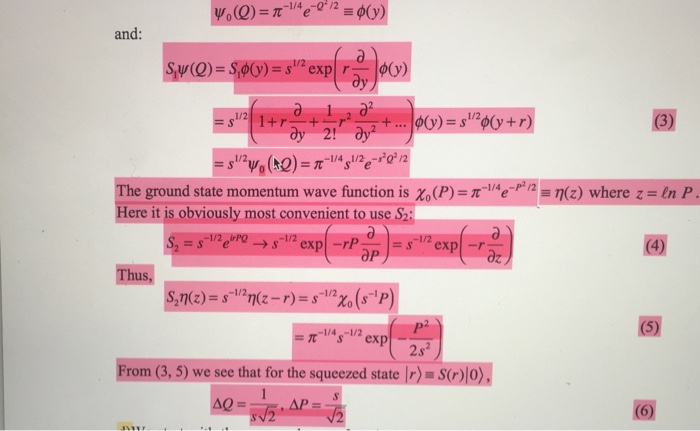 ψ₀(Q) = π^{-1/4} e^{-Q²/2} ≡ ϕ(y)
and:
S₁ψ(Q) = S₁ϕ(y) = s^{1/2} exp(r ∂/∂y) ϕ(y)
= s^{1/2} (1 + r ∂/∂y + 1/2! r² ∂²/∂y² + ...) ϕ(y) = s^{1/2} ϕ(y+r) (3)
= s^{1/2} ψ₀(sQ) = π^{-1/4} s^{1/2} e^{-s²Q²/2}
The ground state momentum wave function is χ₀(P) = π^{-1/4} e^{-P²/2} ≡ η(z) where z = ℓn P.
Here it is obviously most convenient to use S₂:
S₂ = s^{-1/2} e^{irPQ} → s^{-1/2} exp(-rP ∂/∂P) = s^{-1/2} exp(-r ∂/∂z) (4)
Thus,
S₂η(z) = s^{-1/2} η(z-r) = s^{-1/2} χ₀(s^{-1}P)
= π^{-1/4} s^{-1/2} exp(-P²/2s²) (5)
From (3, 5) we see that for the squeezed state |r⟩ ≡ S(r)|0⟩,
ΔQ = 1/s√2, ΔP = s/√2 (6)